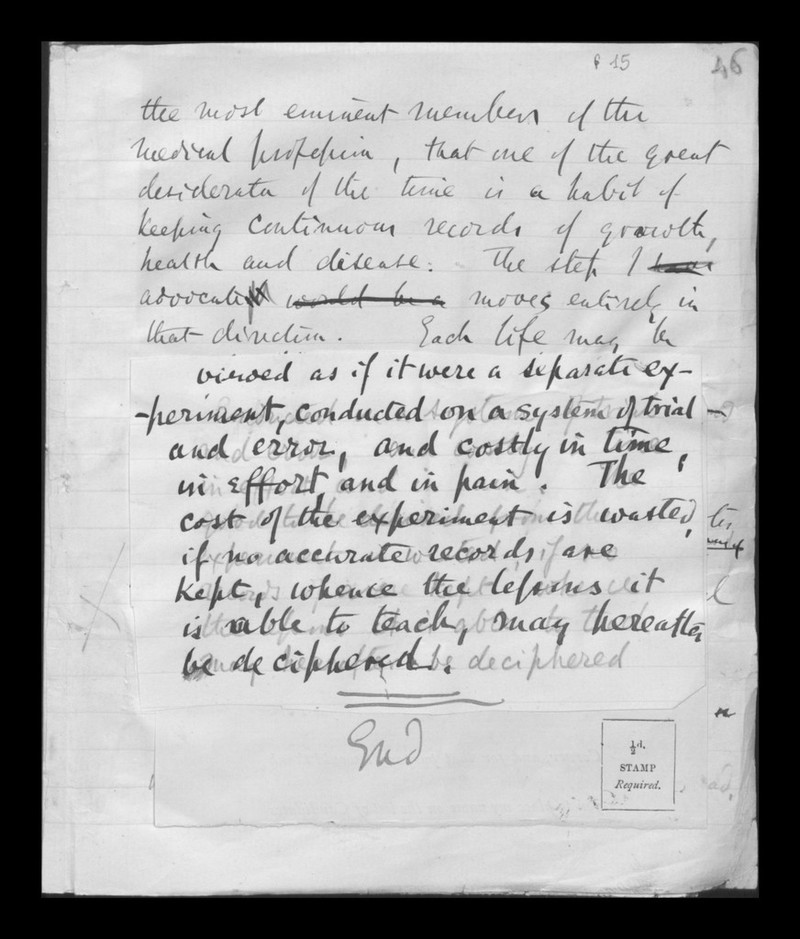 p 15
46
the most eminent members of the
medical profession, that one of the great
desiderata of the time is a habit of
keeping continuous records of growth,
health and disease. The step I
advocate would be a moves entirely in
that direction. Each life may be
viewed as if it were a separate ex-
-periment, conducted on a system of trial -
and error, and costly in time,
in effort, and in pain. The
cost of the experiment is wasted,
if no accurate records are
kept, whence the lessons it
is able to teach, may hereafter
be deciphered.
be deciphered
End
½d.
STAMP
Required.